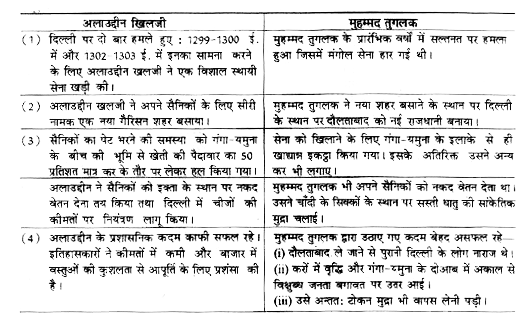 अलाउद्दीन खिलजी
मुहम्मद तुगलक
(1) दिल्ली पर दो बार हमले हुए : 1299-1300 ई.
में और 1302-1303 ई. में इनका सामना करने
के लिए अलाउद्दीन खलजी ने एक विशाल स्थायी
सेना खड़ी की।
मुहम्मद तुगलक के प्रारंभिक वर्षों में सल्तनत पर हमला
हुआ जिसमें मंगोल सेना हार गई थी।
(2) अलाउद्दीन खलजी ने अपने सैनिकों के लिए सीरी
नामक एक नया गैरिसन शहर बसाया।
मुहम्मद तुगलक ने नया शहर बसाने के स्थान पर दिल्ली
के स्थान पर दौलताबाद को नई राजधानी बनाया।
(3) सैनिकों का पेट भरने की समस्या को गंगा-यमुना
के बीच की भूमि से खेती की पैदावार का 50
प्रतिशत मात्र कर के तौर पर लेकर हल किया गया।
सेना को खिलाने के लिए गंगा-यमुना के इलाके से ही
खाद्यान्न इकट्ठा किया गया। इसके अतिरिक्त उसने अन्य
कर भी लगाए।
अलाउद्दीन ने सैनिकों को इक्ता के स्थान पर नकद
वेतन देना तय किया तथा दिल्ली में चीजों की
कीमतों पर नियंत्रण लागू किया।
मुहम्मद तुगलक भी अपने सैनिकों को नकद वेतन देता था।
उसने चाँदी के सिक्कों के स्थान पर सस्ती धातु की सांकेतिक
मुद्रा चलाई।
(4) अलाउद्दीन के प्रशासनिक कदम काफी सफल रहे।
इतिहासकारों ने कीमतों में कमी और बाजार में
वस्तुओं की कुशलता से आपूर्ति के लिए प्रशंसा की
है।
मुहम्मद तुगलक द्वारा उठाए गए कदम बेहद असफल रहे—
(i) दौलताबाद ले जाने से पुरानी दिल्ली के लोग नाराज थे।
(ii) करों में वृद्धि और गंगा-यमुना के दोआब में अकाल से
विक्षुब्ध जनता बगावत पर उतर आई।
(iii) उसे अन्ततः टोकन मुद्रा भी वापस लेनी पड़ी।